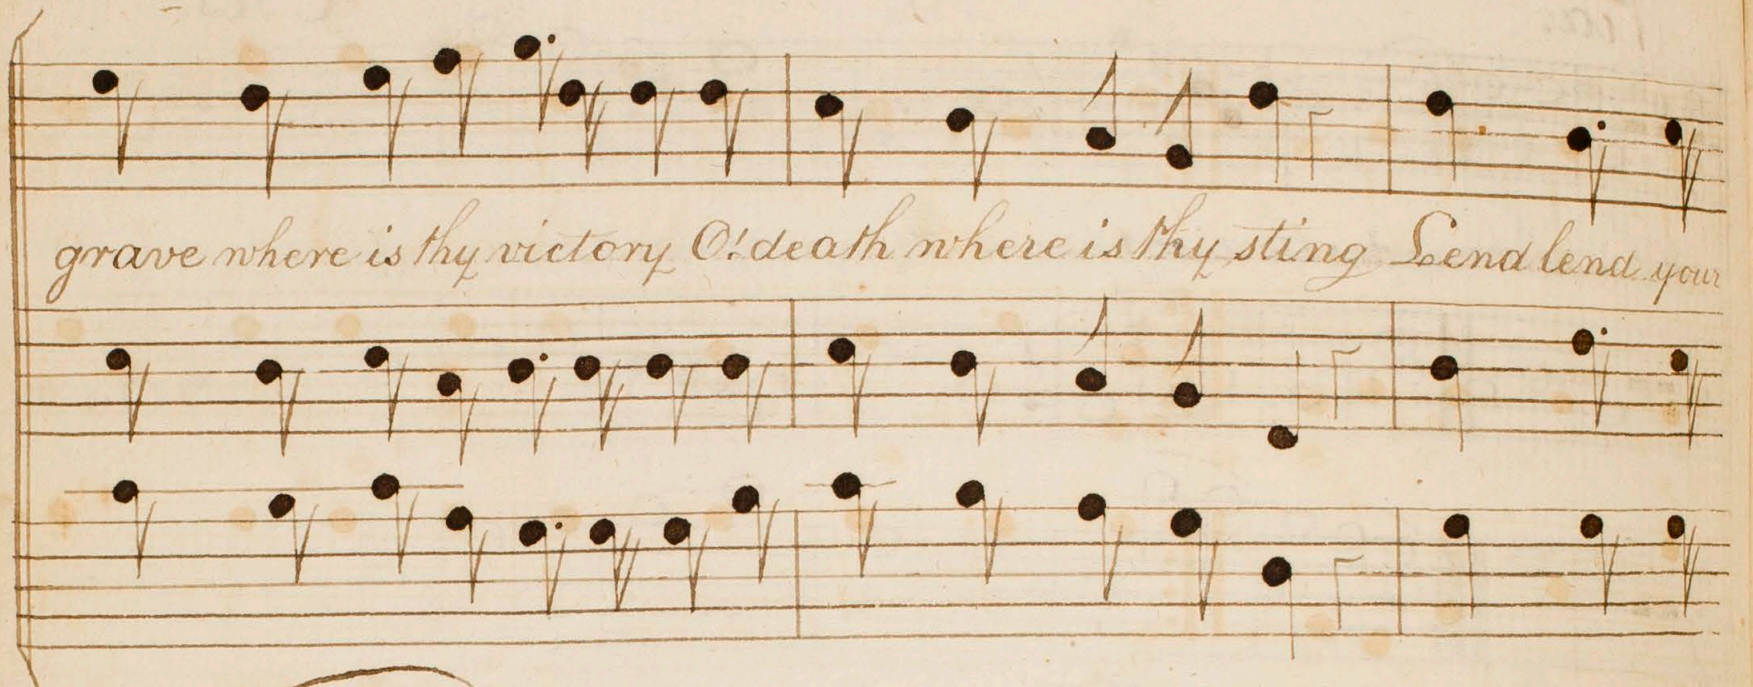 grave where is thy victory O! death where is thy sting Lend lend your